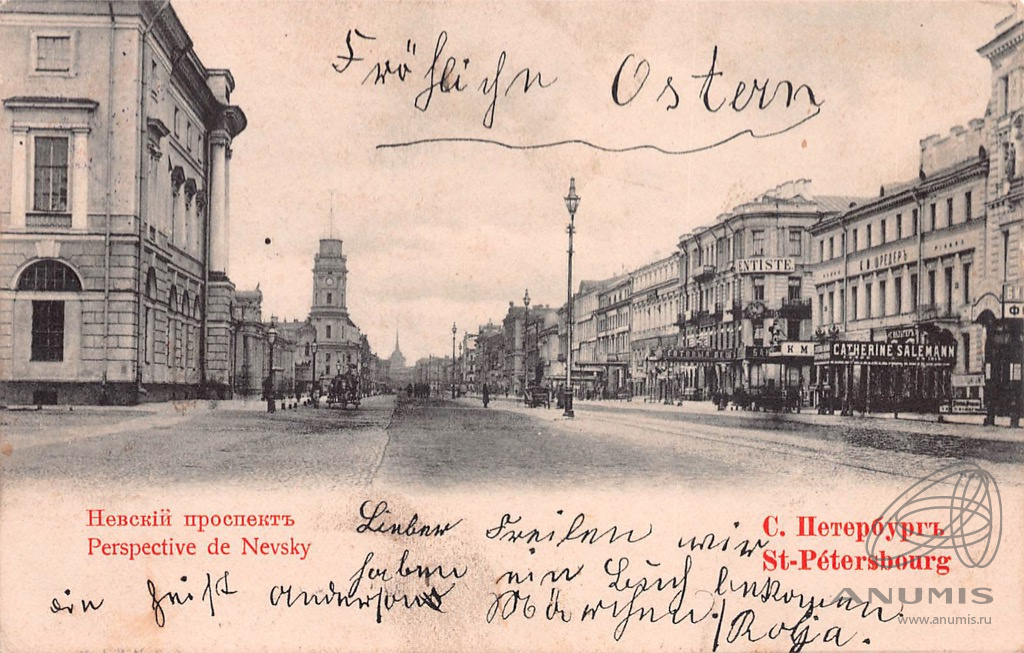 Fröhlich Ostern
ENTISTE
И. И. ШРЕДЕРЪ
К М
CATHERINE SALEMANN
Невскій проспектъ
Perspective de Nevsky
С. Петербургъ
St-Pétersbourg
Lieber Freilen wir
haben ein Buch bekomen.
die heist Anderson Märchen. Rolja.
ANUMIS
www.anumis.ru